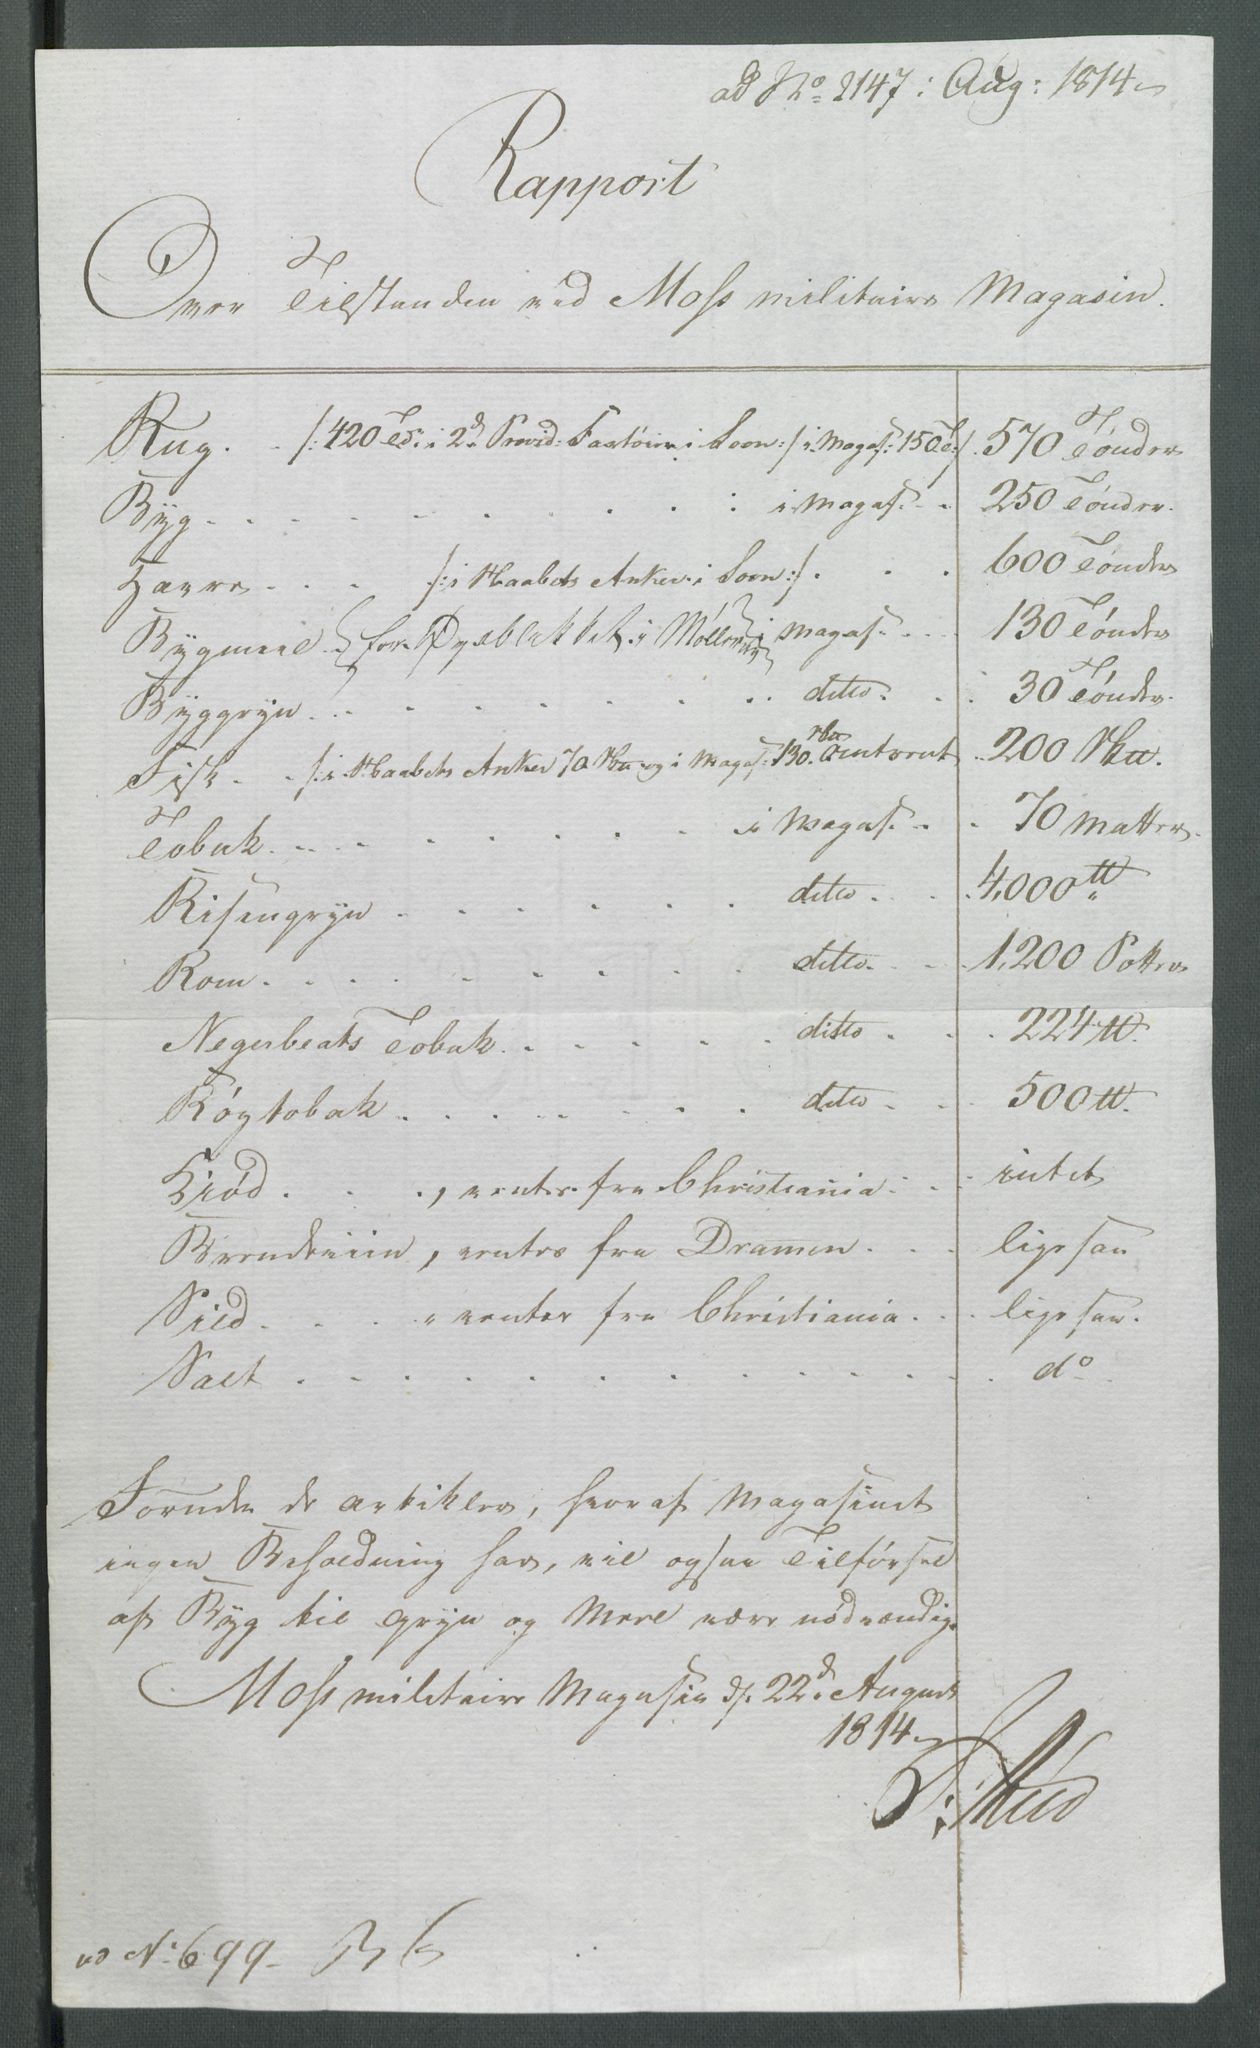 ad No 2147: Aug: 1814
Rapport
Over Tilstanden ved Moss militaire Magasin.
Rug. . /: 420 Td: i 2de Provid: Fartöier i Soon :/ i Magas: 150 T: /. 570 Tönder
Byg . . . i Magas: . . 250 Tönder.
Havre . . . /: i Haabets Anker i Soon :/ . . . 600 Tönder
Bygmeel i Möllerne i Magas: . . 130 Tönder
Byggryn . . . ditto. . . 30 Tönder.
Fisk . . /: i Haabets Anker 70 Vou og i Magas: 130 Vou omtrent . 200 Vou.
Tobak . . . i Magas: . . 70 Matter.
Risengryn . . . ditto . . . 4,000 tt
Rom . . . ditto. . . 1,200 Potter
Negerbeats Tobak . . . ditto . . . 224 tt.
Rögtobak . . . ditto . . . 500 tt.
Kiöd . . . , ventes fra Christiania . . . intet
Brendeviin , ventes fra Dramen . . . ligesaa
Sild . . . " ventes fra Christiania . . . ligesaa.
Salt . . . do
Foruden de Artikler, hvoraf Magasinet
ingen Beholdning har, vil ogsaa Tilförsel
af Byg til Gryn og Meel være nödvændig.
Moss militaire Magasin d. 22de August
1814
ad No 699